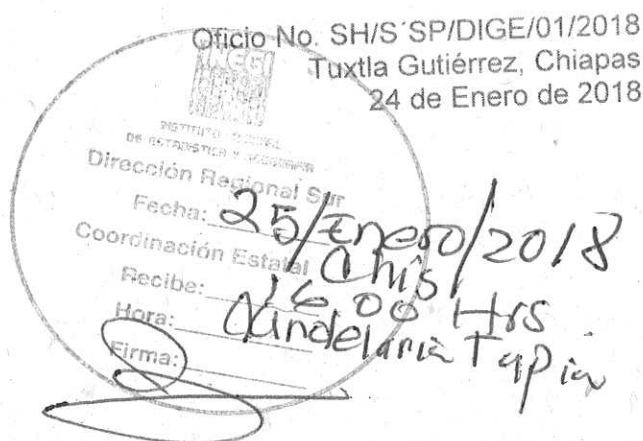 Oficio No. SH/S´SP/DIGE/01/2018
Tuxtla Gutiérrez, Chiapas
24 de Enero de 2018
INEGI
INSTITUTO NACIONAL
DE ESTADISTICA Y GEOGRAFIA
Dirección Regional Sur
Fecha: 25/Enero/2018
Coordinación Estatal Chis
Recibe: 16 00 Hrs
Hora: Candelaria Tapia
Firma: